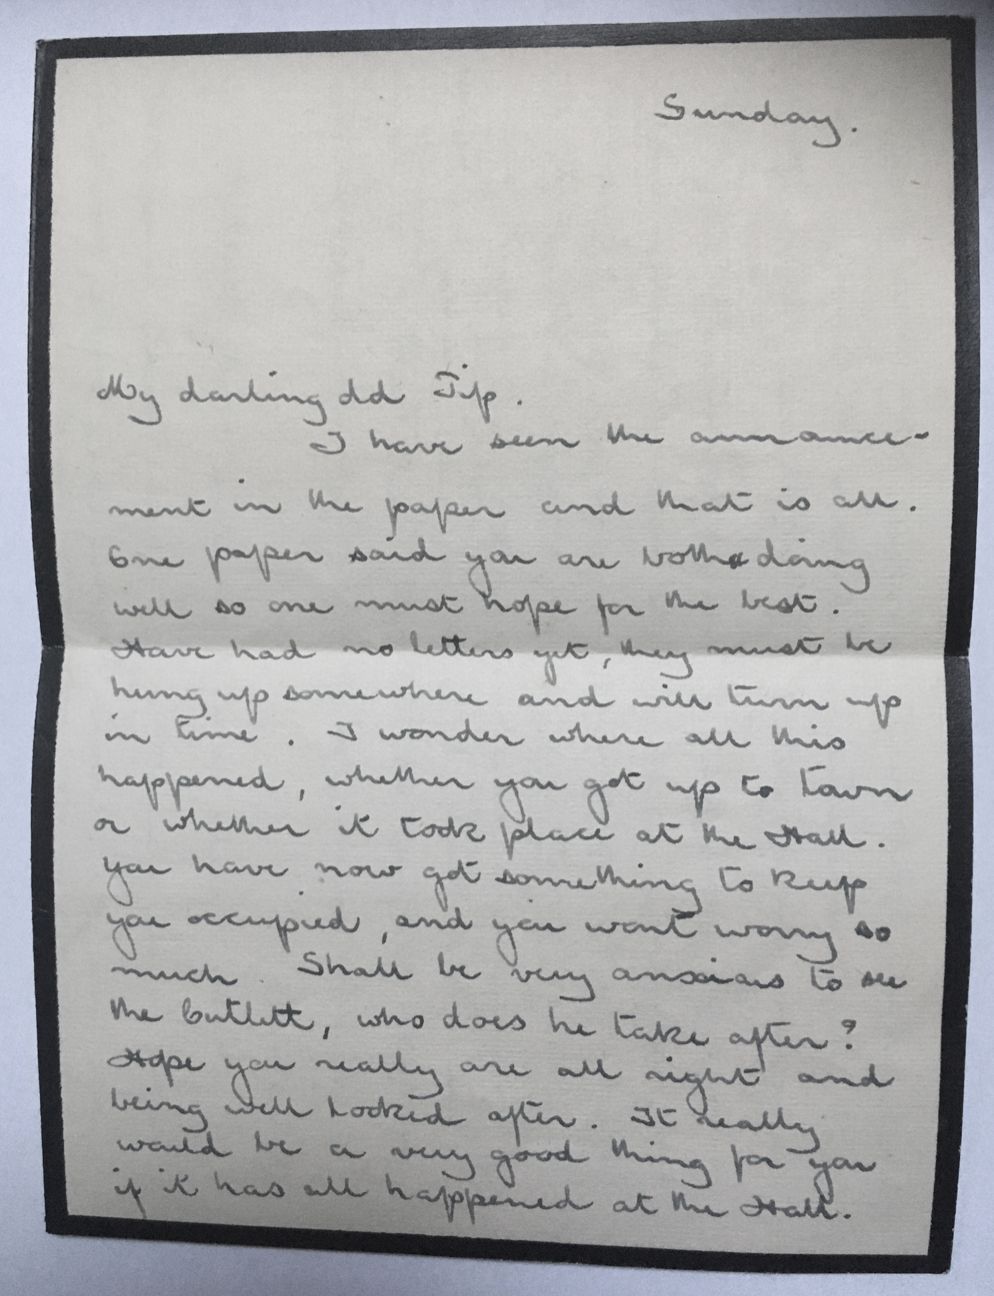 Sunday.
My darling old Tip.
I have seen the announce-
ment in the paper and that is all.
One paper said you are both doing
well so one must hope for the best.
Have had no letters yet, they must be
hung up somewhere and will turn up
in time. I wonder where all this
happened, whether you got up to town
or whether it took place at the Hall.
You have now got something to keep
you occupied, and you wont worry so
much. Shall be very anxious to see
the , who does he take after?
Hope you really are all right and
being well looked after. It really
would be a very good thing for you
if it has all happened at the Hall.